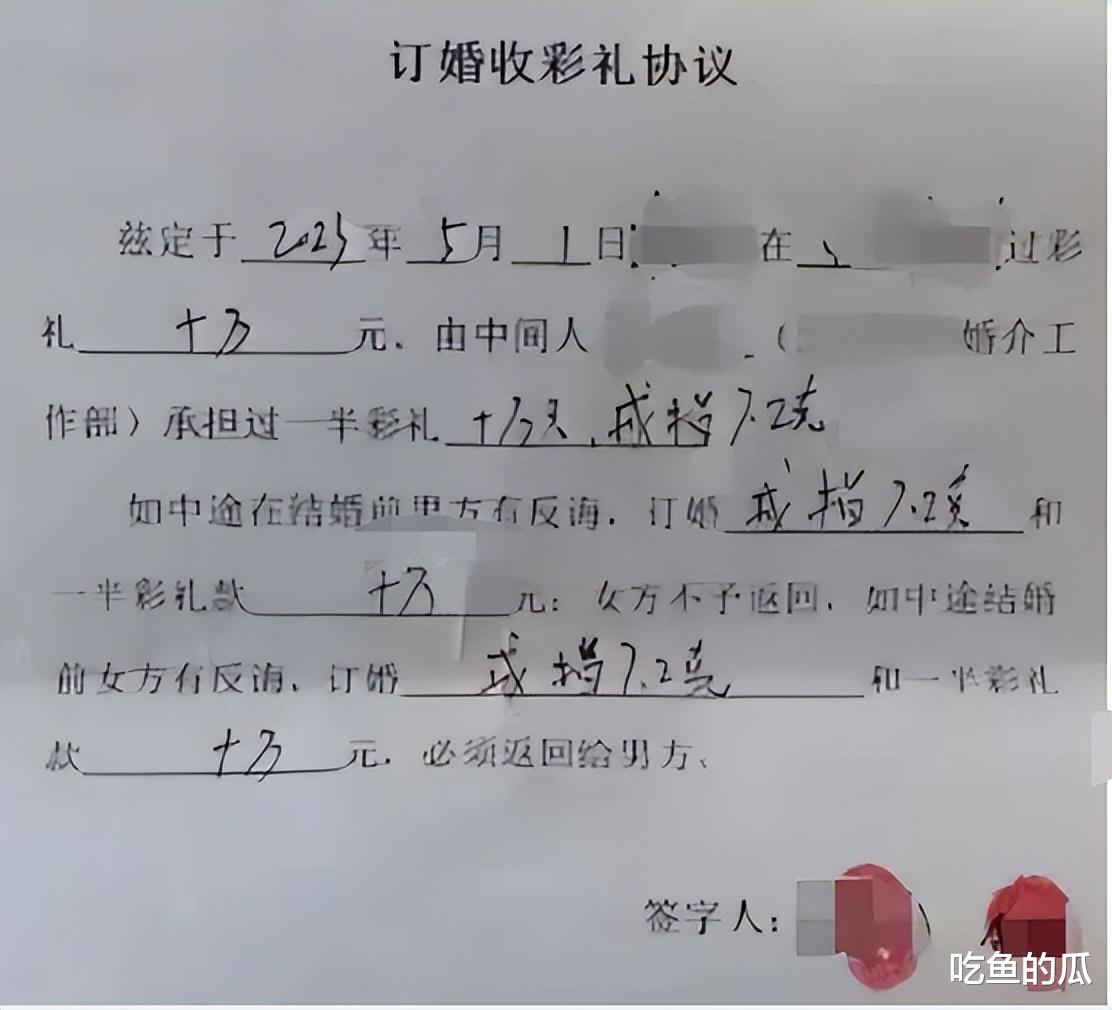 订婚收彩礼协议
兹定于2023年5月1日 在 过彩
礼十万元．由中间人 （ 婚介工
作部）承担过一半彩礼十万元、戒指7.2克
如中途在结婚前男方有反海．订婚戒指7.2克和
一半彩礼款十万元：女方不予返回．如中途结婚
前女方有反海、订婚戒指7.2克和一半彩礼
款十万元．必须返回给男方、
签字人：
吃鱼的瓜